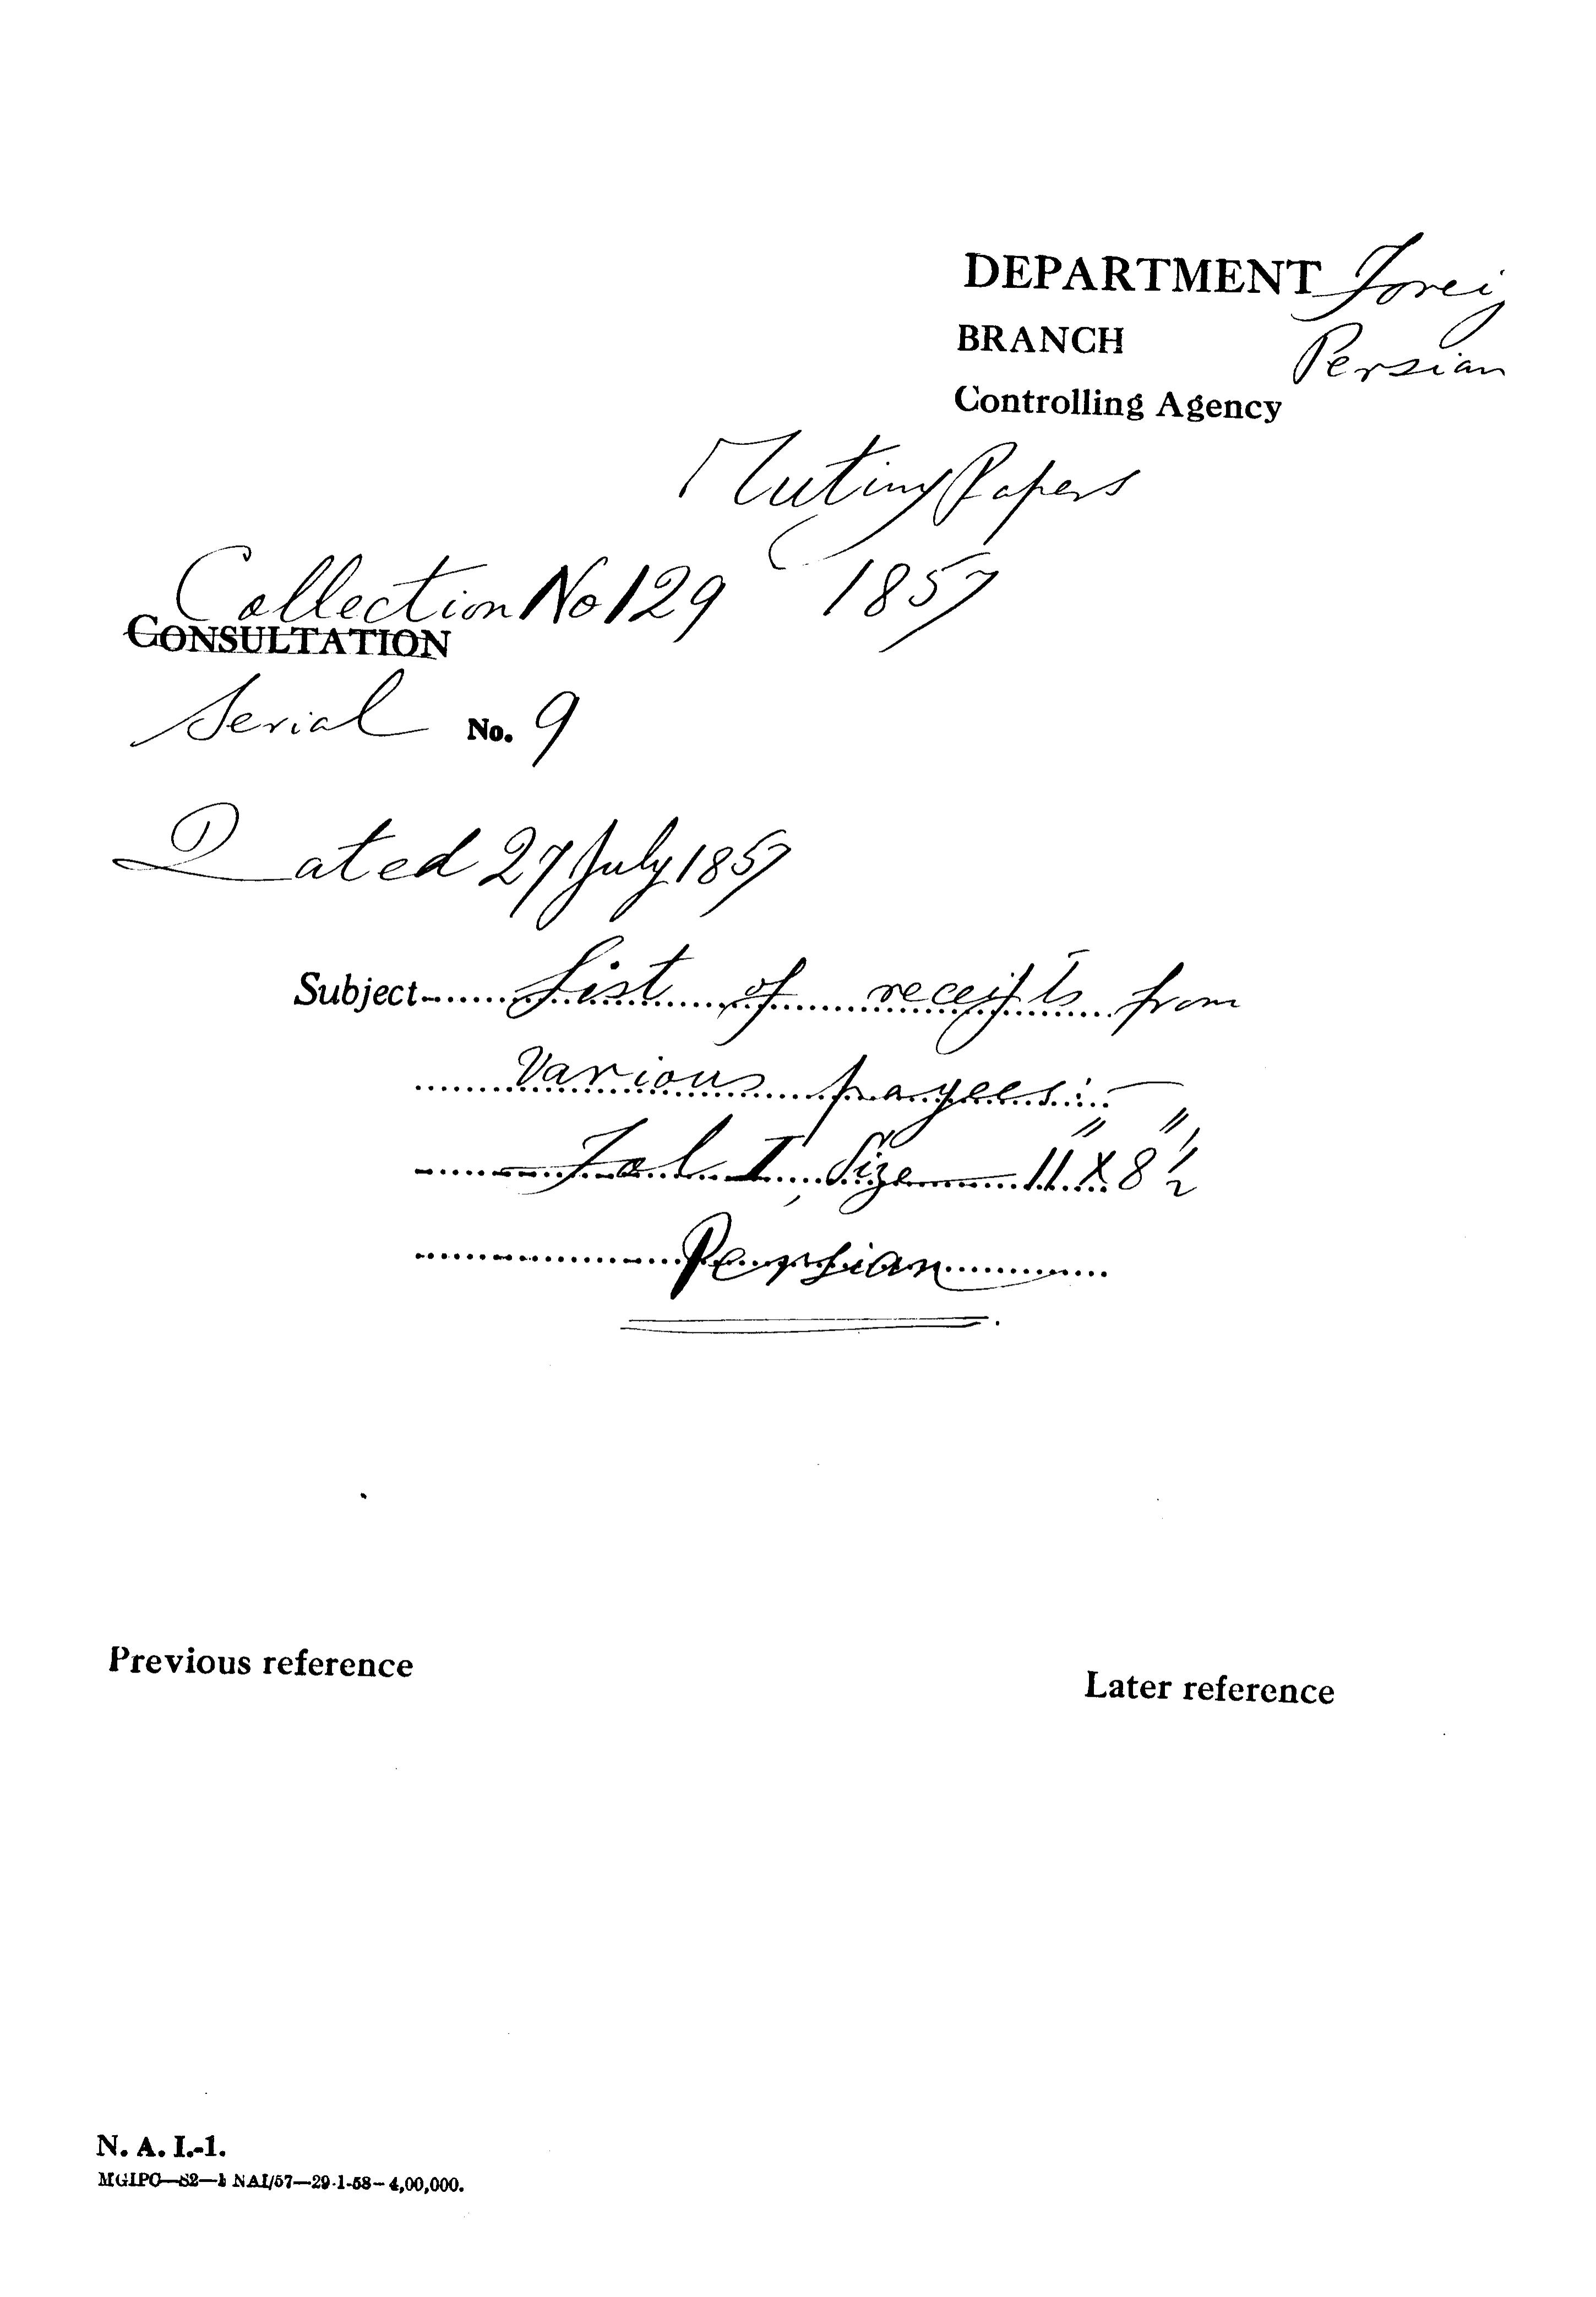 DEPARTMENT Foreig
BRANCH Persian
Controlling Agency
Mutiny Papers
Collection No 129 1857
CONSULTATION
Serial No. 9
Dated 27 July 1857
Subject List of receipts from
Various payees:-
Fol I, Size 11" X 8 1/2"
Persian
Previous reference
Later reference
N. A. I.-1.
MGIPC—S2—1 NAI/57—29-1-58—4,00,000.